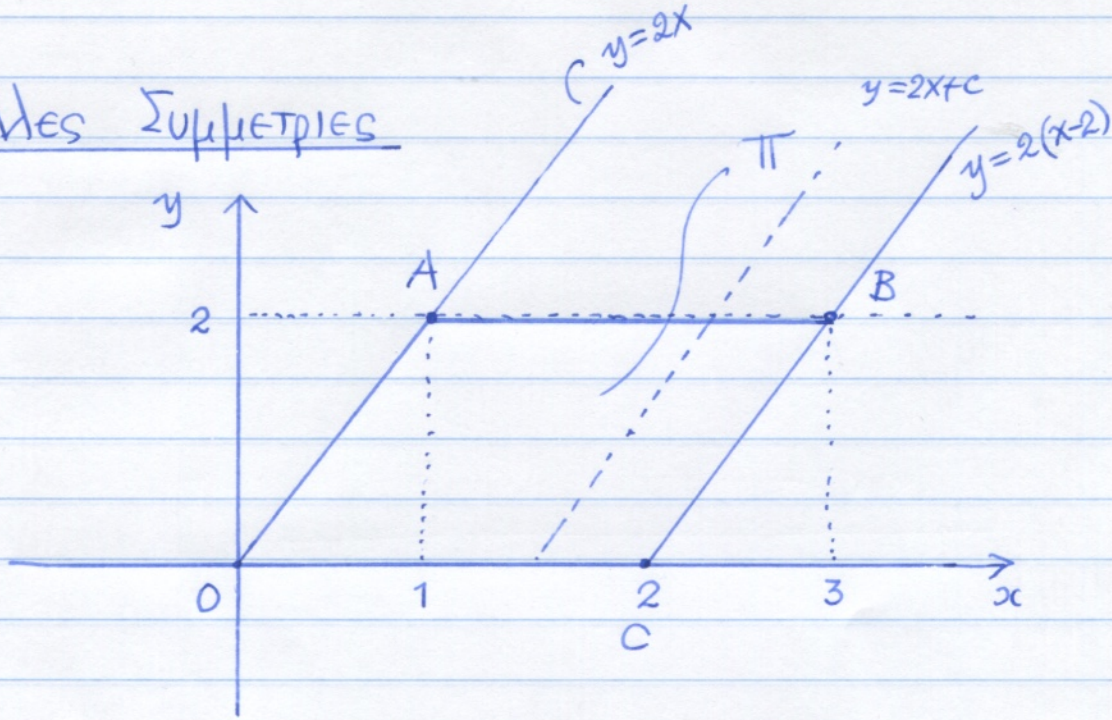 λες Συμμετριες
y=2x
y=2x+c
y=2(x-2)
Π
y
A
B
2
0
1
2
3
x
C